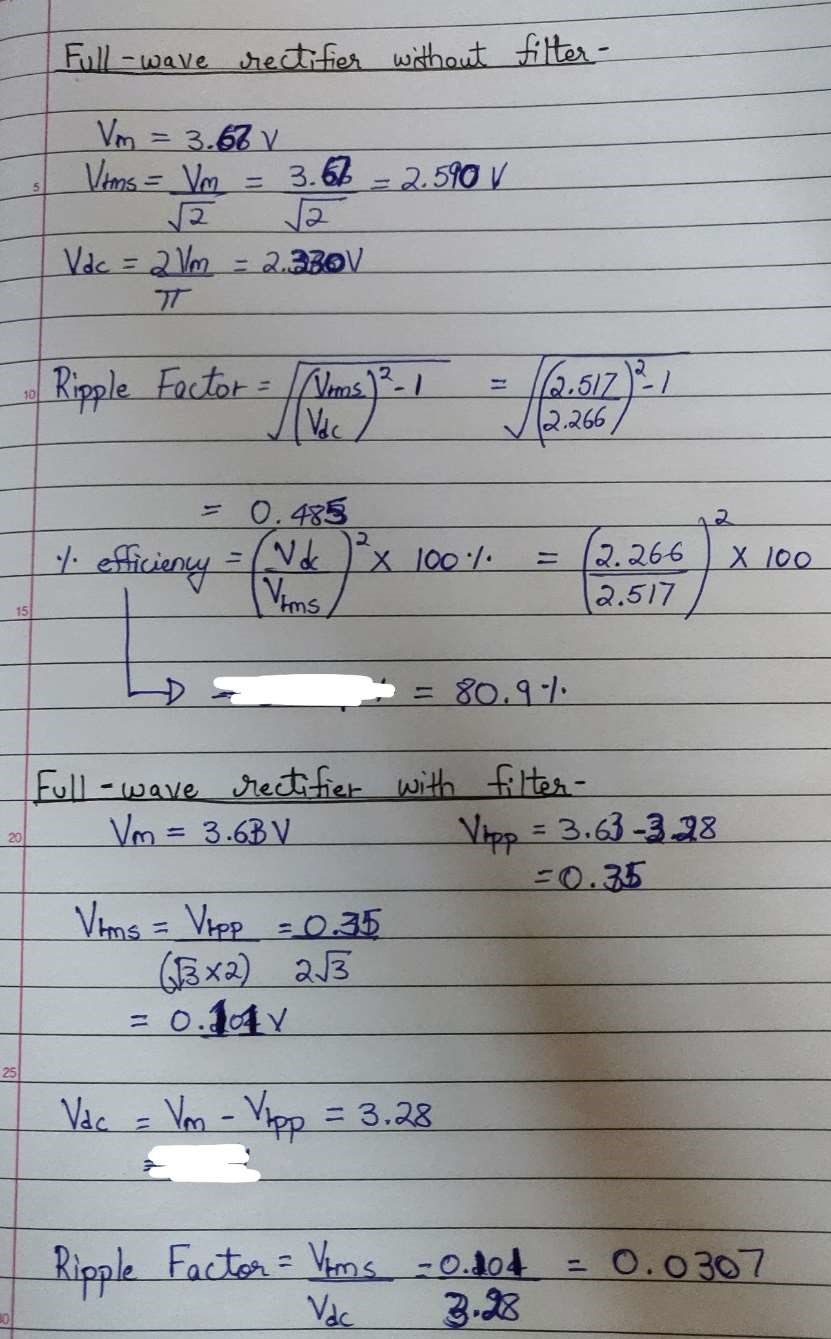 Full-wave rectifier without filter-
Vm = 3.66 V
Vrms = Vm/√2 = 3.66/√2 = 2.590 V
Vdc = 2Vm/π = 2.330V
Ripple Factor = √((Vrms/Vdc)²-1) = √((2.517/2.266)²-1)
= 0.483
% efficiency = (Vdc/Vrms)² × 100% = (2.266/2.517)² × 100
= 80.9%
Full-wave rectifier with filter-
Vm = 3.63V Vrpp = 3.63-3.28
= 0.35
Vrms = Vrpp/(√3×2) = 0.35/2√3
= 0.101 V
Vdc = Vm - Vrpp = 3.28
=
Ripple Factor = Vrms/Vdc = 0.101/3.28 = 0.0307
5
10
15
20
25